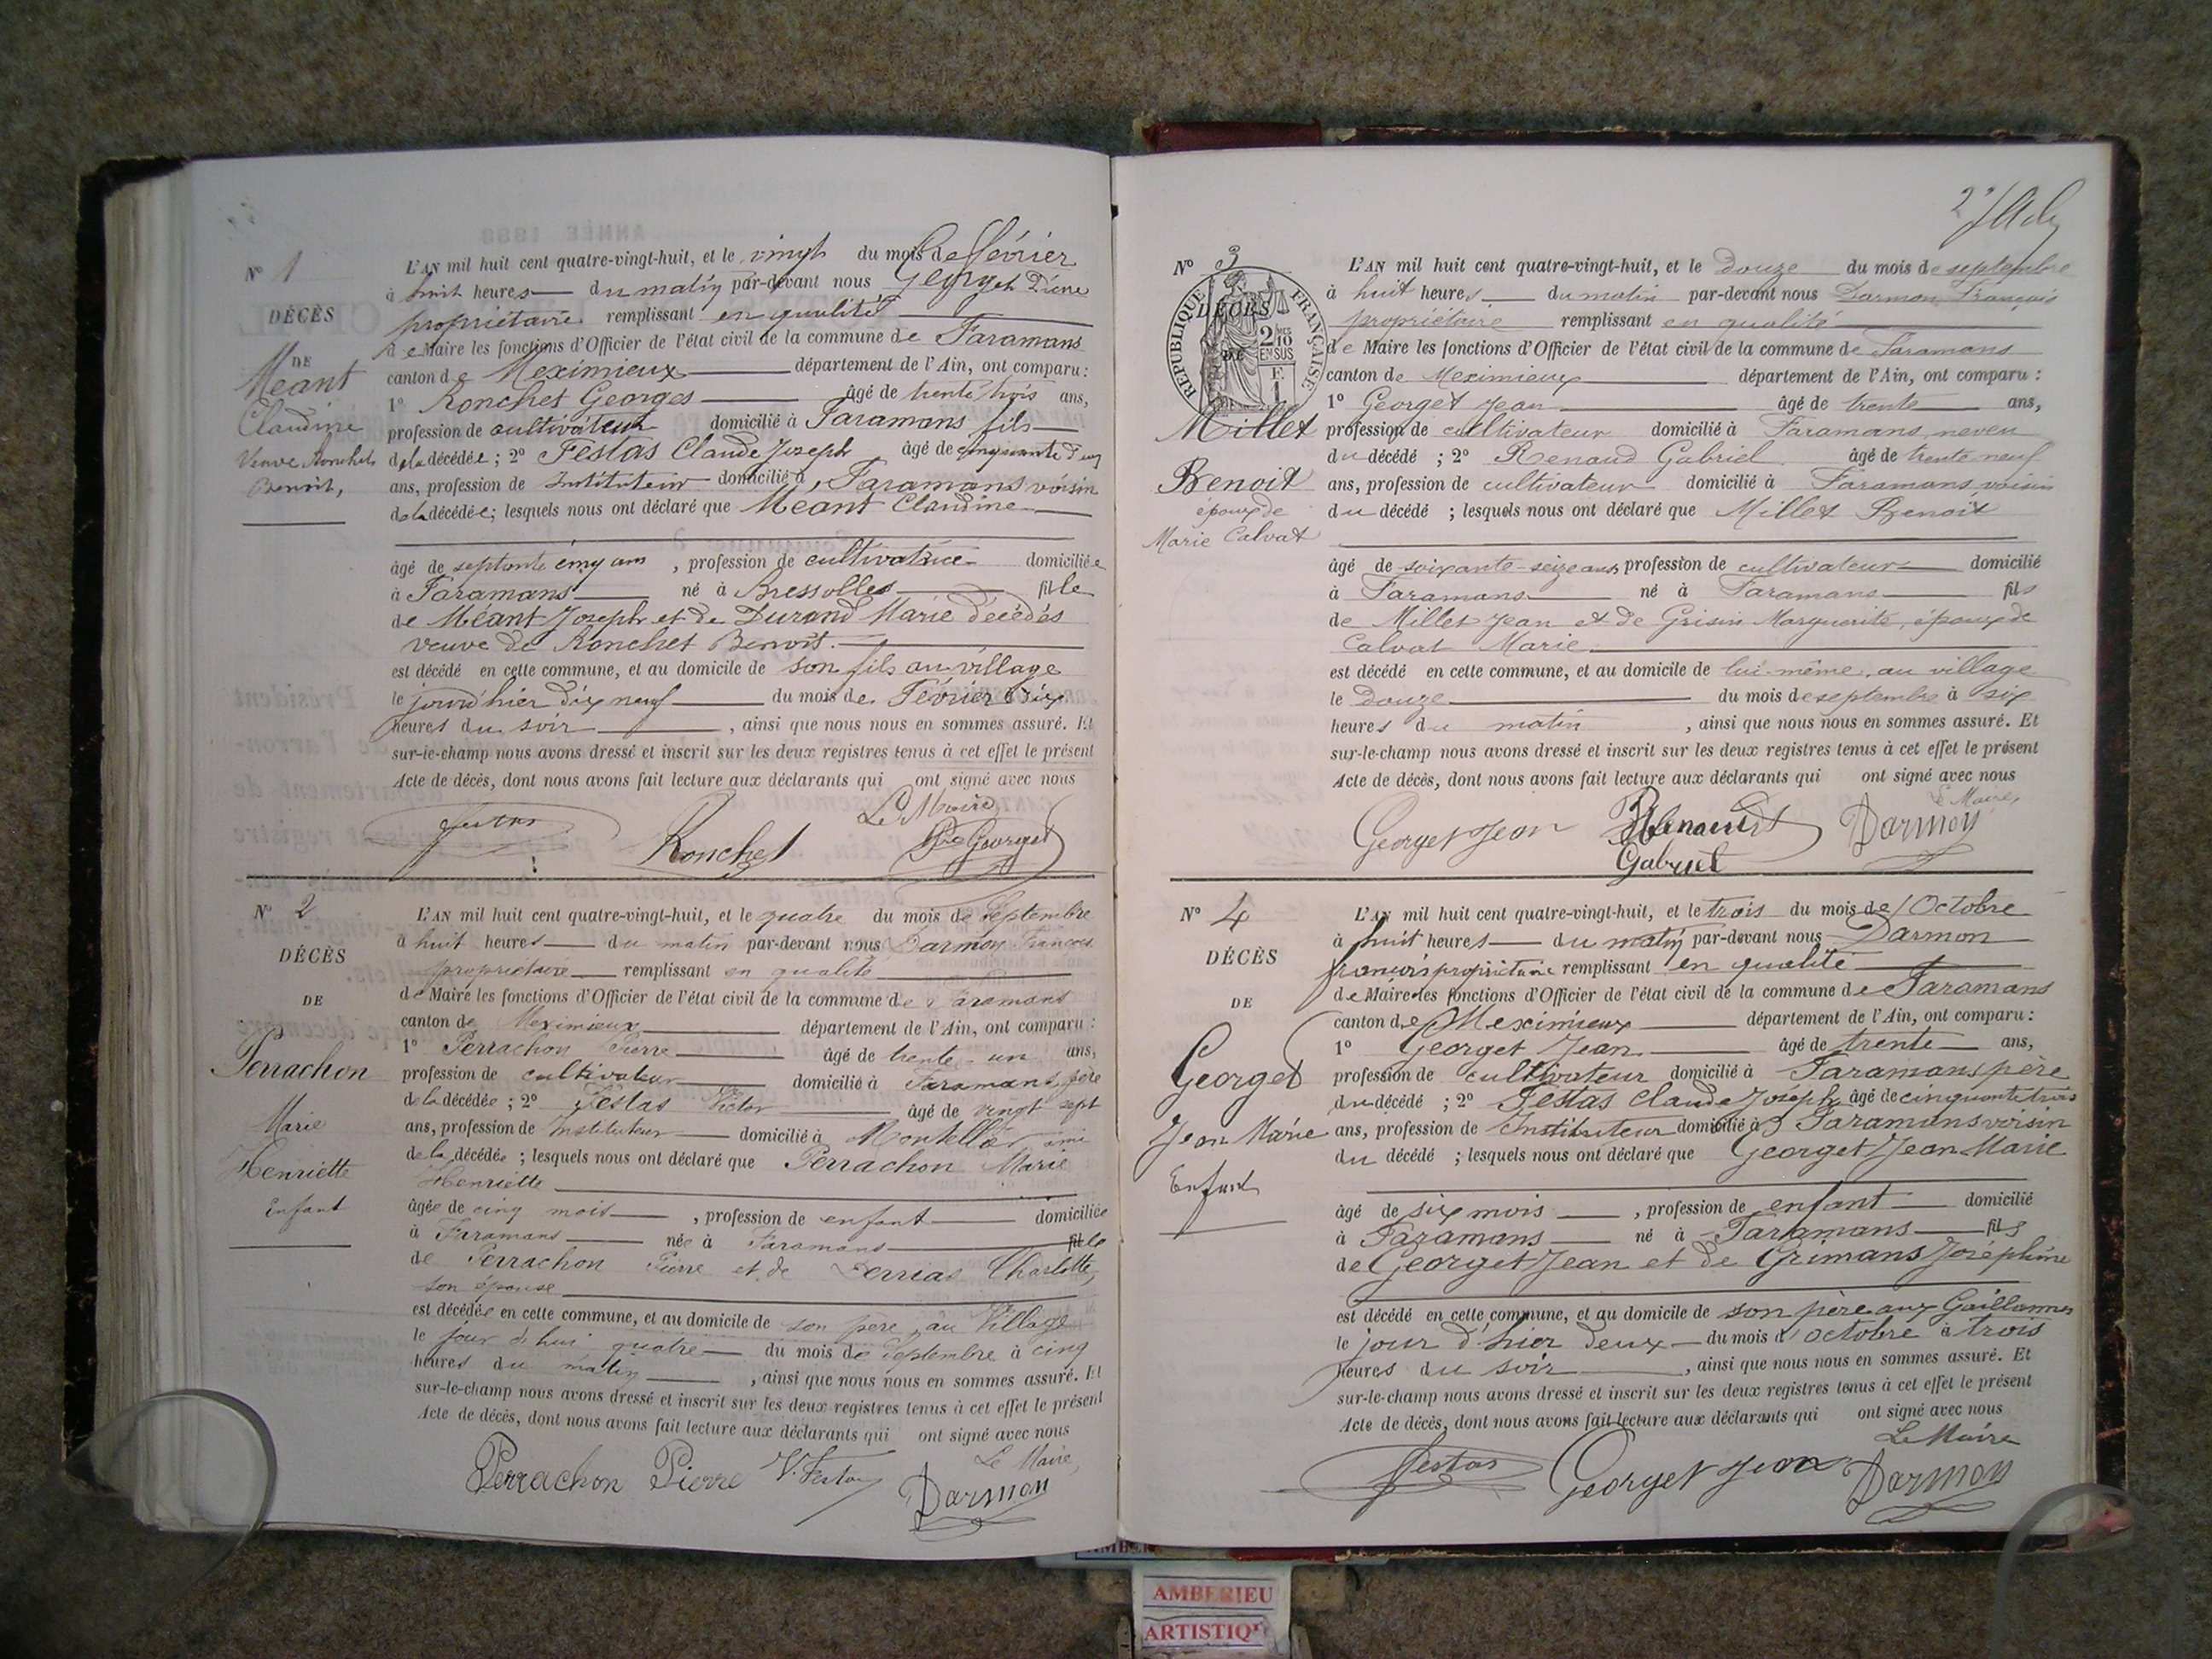 N° 1
DÉCÈS
DE
Méant
Claudine
Veuve Ronchet
Benoit,
L'AN mil huit cent quatre-vingt-huit, et le vingt du mois de février
à huit heures du matin par-devant nous Georget Pierre
propriétaire remplissant en qualité
de Maire les fonctions d'Officier de l'état civil de la commune de Faramans
canton de Meximieux département de l'Ain, ont comparu :
1° Ronchet Georges âgé de trente trois ans,
profession de cultivateur domicilié à Faramans fils
de la décédée ; 2° Festas Claude Joseph âgé de cinquante deux
ans, profession de Instituteur domicilié à Faramans voisin
de la décédée ; lesquels nous ont déclaré que Méant Claudine
âgé de septante cinq ans , profession de cultivatrice domiciliée
à Faramans né à Bressolles fille
de Méant Joseph et de Durand Marie décédés
veuve de Ronchet Benoit.
est décédé en cette commune, et au domicile de son fils au village
le jourd'hier dix neuf du mois de Février à six
heures du soir , ainsi que nous nous en sommes assuré. Et
sur-le-champ nous avons dressé et inscrit sur les deux registres tenus à cet effet le présent
Acte de décès, dont nous avons fait lecture aux déclarants qui ont signé avec nous
Le Maire
Festas Ronchet Georget
N° 2
DÉCÈS
DE
Perrachon
Marie
Henriette
Enfant
L'AN mil huit cent quatre-vingt-huit, et le quatre du mois de Septembre
à huit heures du matin par-devant nous Darmon François
propriétaire remplissant en qualité
de Maire les fonctions d'Officier de l'état civil de la commune de Faramans
canton de Meximieux département de l'Ain, ont comparu :
1° Perrachon Pierre âgé de trente un ans,
profession de cultivateur domicilié à Faramans père
de la décédée ; 2° Festas Victor âgé de vingt sept
ans, profession de Instituteur domicilié à Montellier ami
de la décédée ; lesquels nous ont déclaré que Perrachon Marie
Henriette
âgée de cinq mois , profession de enfant domiciliée
à Faramans née à Faramans fille
de Perrachon Pierre et de Charlotte,
son épouse
est décédée en cette commune, et au domicile de son père au Village
le jour d'hui quatre du mois de Septembre à cinq
heures du matin , ainsi que nous nous en sommes assuré. Et
sur-le-champ nous avons dressé et inscrit sur les deux registres tenus à cet effet le présent
Acte de décès, dont nous avons fait lecture aux déclarants qui ont signé avec nous
Le Maire,
Perrachon Pierre V. Festas Darmon
N° 3
RÉPUBLIQUE FRANÇAISE
DÉCÈS
DE
2/10 EN SUS
Millet
Benoit
époux de
Marie Calvat
L'AN mil huit cent quatre-vingt-huit, et le Douze du mois de septembre
à huit heures du matin par-devant nous Darmon François
propriétaire remplissant en qualité
de Maire les fonctions d'Officier de l'état civil de la commune de Faramans
canton de Meximieux département de l'Ain, ont comparu :
1° Georget Jean âgé de trente ans,
profession de cultivateur domicilié à Faramans neveu
du décédé ; 2° Renaud Gabriel âgé de trente neuf
ans, profession de cultivateur domicilié à Faramans voisin
du décédé ; lesquels nous ont déclaré que Millet Benoit
âgé de soixante-seize ans profession de cultivateur domicilié
à Faramans né à Faramans fils
de Millet Jean et de Grisin Marguerite, époux de
Calvat Marie
est décédé en cette commune, et au domicile de lui-même, au village
le Douze du mois de septembre à six
heures du matin , ainsi que nous nous en sommes assuré. Et
sur-le-champ nous avons dressé et inscrit sur les deux registres tenus à cet effet le présent
Acte de décès, dont nous avons fait lecture aux déclarants qui ont signé avec nous
Le Maire,
Georget Jean Darmon
Gabriel
N° 4
DÉCÈS
DE
Georget
Jean Marie
Enfant
L'AN mil huit cent quatre-vingt-huit, et le trois du mois de Octobre
à huit heures du matin par-devant nous Darmon
françois propriétaire remplissant en qualité
de Maire les fonctions d'Officier de l'état civil de la commune de Faramans
canton de Meximieux département de l'Ain, ont comparu :
1° Georget Jean âgé de trente ans,
profession de cultivateur domicilié à Faramans père
du décédé ; 2° Festas Claude Joseph âgé de cinquante trois
ans, profession de Instituteur domicilié à Faramans voisin
du décédé ; lesquels nous ont déclaré que Georget Jean Marie
âgé de six mois , profession de enfant domicilié
à Faramans né à Faramans fils
de Georget Jean et de Grimans Joséphine
est décédé en cette commune, et au domicile de son père aux
le jour d'hier deux du mois d'octobre à trois
heures du soir , ainsi que nous nous en sommes assuré. Et
sur-le-champ nous avons dressé et inscrit sur les deux registres tenus à cet effet le présent
Acte de décès, dont nous avons fait lecture aux déclarants qui ont signé avec nous
Le Maire
Festas Georget Jean Darmon
AMBERIEU
ARTISTIQ